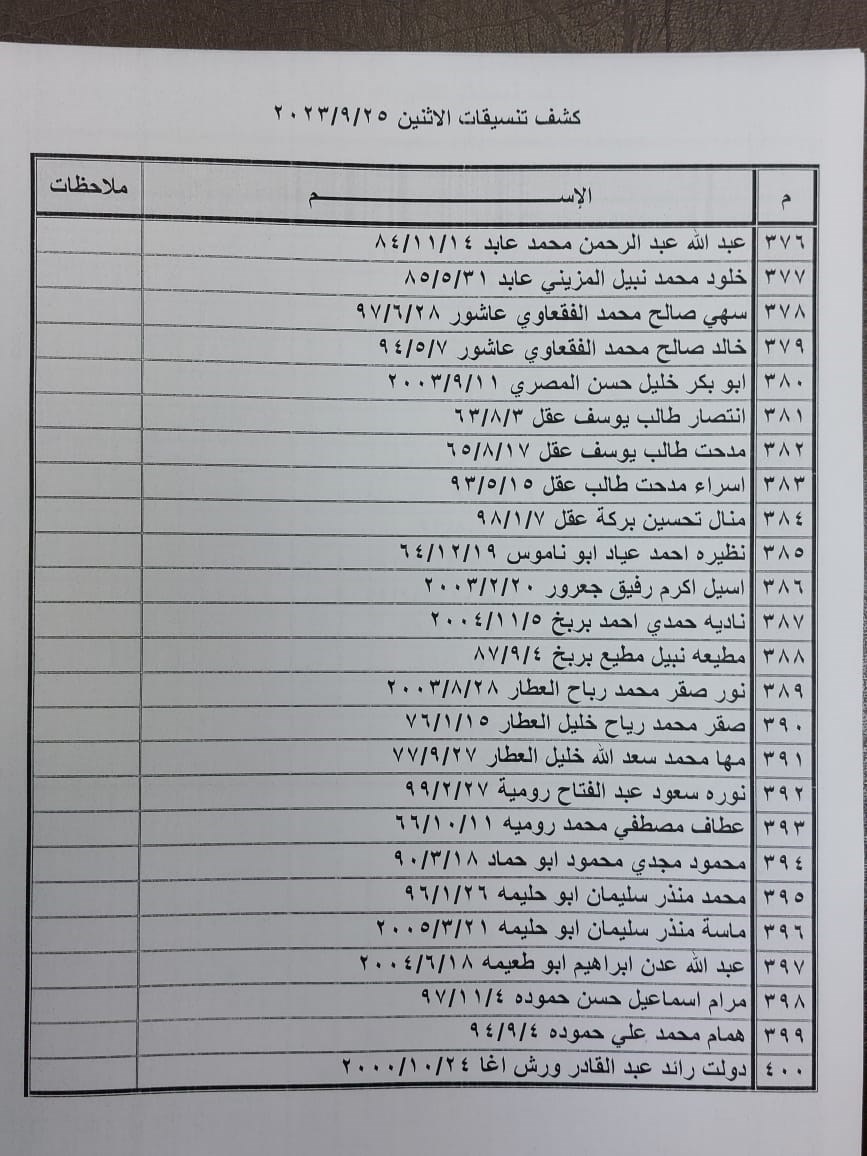 كشف تنسيقات الاثنين ٢٠٢٣/٩/٢٥
م الإســـــــــــــــــم ملاحظات
٣٧٦ عبد الله عبد الرحمن محمد عابد ٨٤/١١/١٤
٣٧٧ خلود محمد نبيل المزيني عابد ٨٥/٥/٣١
٣٧٨ سهي صالح محمد الفقعاوي عاشور ٩٧/٦/٢٨
٣٧٩ خالد صالح محمد الفقعاوي عاشور ٩٤/٥/٧
٣٨٠ ابو بكر خليل حسن المصري ٢٠٠٣/٩/١١
٣٨١ انتصار طالب يوسف عقل ٦٣/٨/٣
٣٨٢ مدحت طالب يوسف عقل ٦٥/٨/١٧
٣٨٣ اسراء مدحت طالب عقل ٩٣/٥/١٥
٣٨٤ منال تحسين بركة عقل ٩٨/١/٧
٣٨٥ نظيره احمد عياد ابو ناموس ٦٤/١٢/١٩
٣٨٦ اسيل اكرم رفيق جعرور ٢٠٠٣/٢/٢٠
٣٨٧ ناديه حمدي احمد بربخ ٢٠٠٤/١١/٥
٣٨٨ مطيعه نبيل مطيع بربخ ٨٧/٩/٤
٣٨٩ نور صقر محمد رباح العطار ٢٠٠٣/٨/٢٨
٣٩٠ صقر محمد رباح خليل العطار ٧٦/١/١٥
٣٩١ مها محمد سعد الله خليل العطار ٧٧/٩/٢٧
٣٩٢ نوره سعود عبد الفتاح رومية ٩٩/٢/٢٧
٣٩٣ عطاف مصطفي محمد روميه ٦٦/١٠/١١
٣٩٤ محمود مجدي محمود ابو حماد ٩٠/٣/١٨
٣٩٥ محمد منذر سليمان ابو حليمه ٩٦/١/٢٦
٣٩٦ ماسة منذر سليمان ابو حليمه ٢٠٠٥/٣/٢١
٣٩٧ عبد الله عدن ابراهيم ابو طعيمه ٢٠٠٤/٦/١٨
٣٩٨ مرام اسماعيل حسن حموده ٩٧/١١/٤
٣٩٩ همام محمد علي حموده ٩٤/٩/٤
٤٠٠ دولت رائد عبد القادر ورش اغا ٢٠٠٠/١٠/٢٤